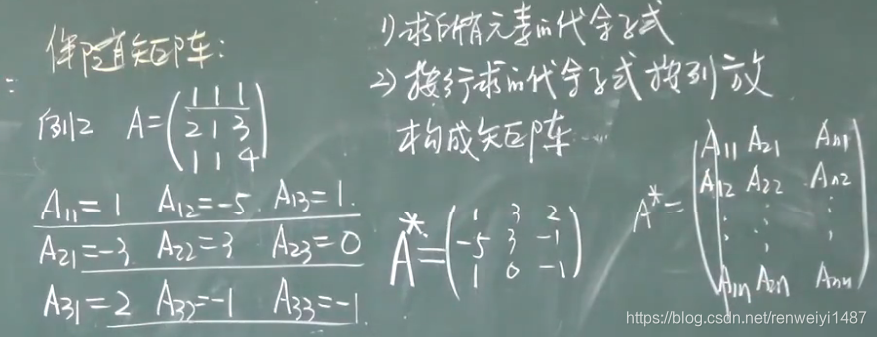 伴随矩阵:
例2 A=(1 1 1
2 1 3
1 1 4)
A₁₁=1 A₁₂=-5 A₁₃=1
A₂₁=-3 A₂₂=3 A₂₃=0
A₃₁=2 A₃₂=-1 A₃₃=-1
1) 求所有元素的代余子式
2) 按行求的代余子式按列放
构成矩阵
A*=(1 3 2
-5 3 -1
1 0 -1)
A*=(A₁₁ A₂₁ Aₙ₁
A₁₂ A₂₂ Aₙ₂
⋮ ⋮ ⋮
A₁ₙ A₂ₙ Aₙₙ)
https://blog.csdn.net/renweiyi1487